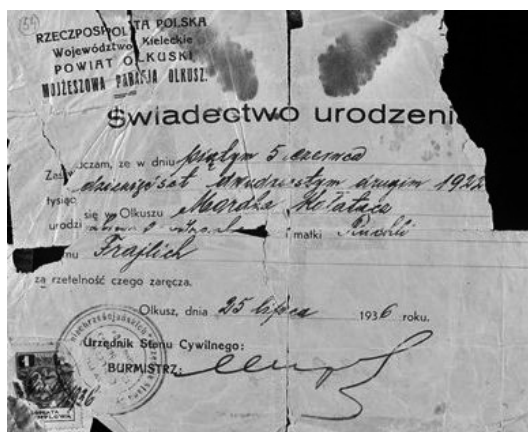 (59)
RZECZPOSPOLITA POLSKA
Województwo Kieleckie
POWIAT OLKUSKI
MOJŻESZOWA PARAFJA OLKUSZ.
Świadectwo urodzeni
czam, że w dniu piątym 5 czerwca
tysiąc dziewięćset dwudziestym drugim 1922
urodzi się w Olkuszu
i matki Ruchli
mu Frajlich
za rzetelność czego zaręcza.
Olkusz, dnia 25 lipca 1936 roku.
Urzędnik Stanu Cywilnego:
BURMISTRZ:
1